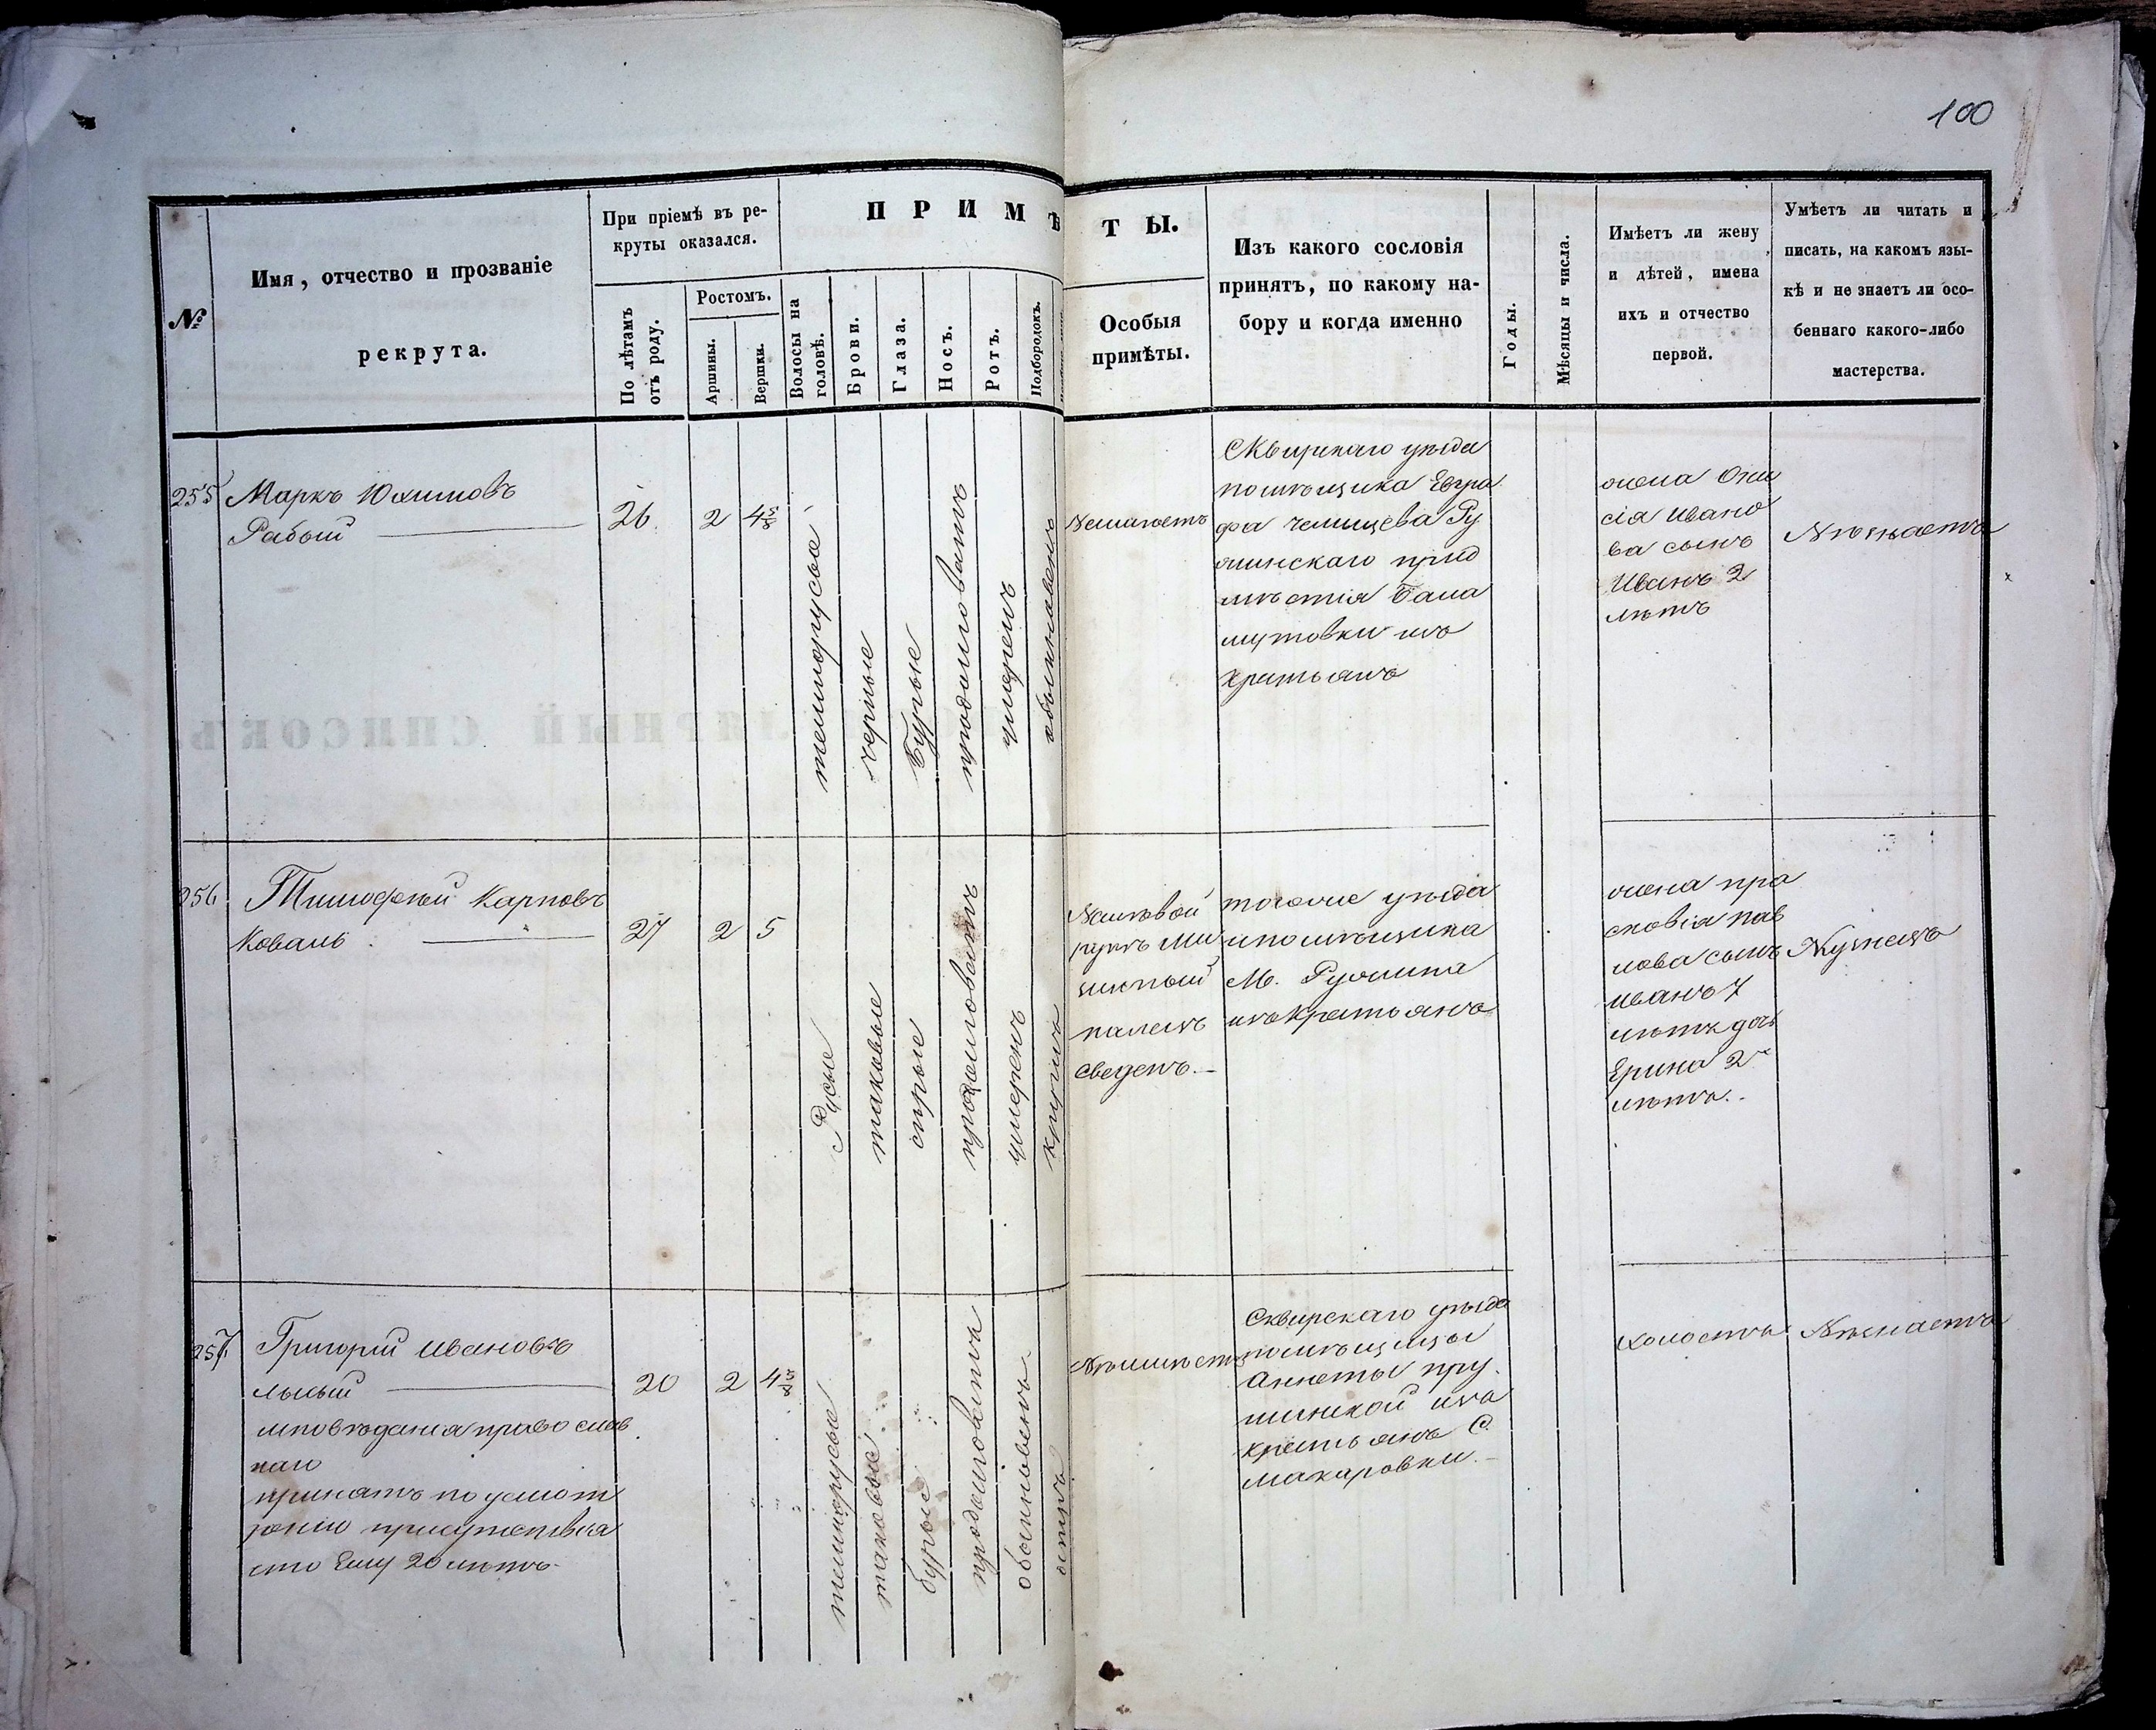 100
№
Имя, отчество и прозваніе
рекрута.
При пріемѣ въ ре-
круты оказался.
По лѣтамъ
отъ роду.
Ростомъ.
Аршины.
Вершки.
ПРИМѢ
Волосы на
головѣ.
Брови.
Глаза.
Носъ.
Ротъ.
Подбородокъ.
ТЫ.
Особыя
примѣты.
Изъ какого сословія
принятъ, по какому на-
бору и когда именно
Годы.
Мѣсяцы и числа.
Имѣетъ ли жену
и дѣтей, имена
ихъ и отчество
первой.
Умѣетъ ли читать и
писать, на какомъ язы-
кѣ и не знаетъ ли осо-
беннаго какого-либо
мастерства.
255
Маркъ Юхимовъ
Рабый
26
2
4 5/8
темнорусые
черные
Бурые
продолговатъ
умеренъ
обыкновенъ
Неимѣетъ
Сквирскаго уѣзда
помѣщика Евгра
фа челищева Ру
жинскаго пред
мѣстія Бала
мутовки изъ
крестьянъ
жена Они
сія Ивано
ва сынъ
Иванъ 2
лѣтъ
Незнаетъ
256
Тимофѣй Карповъ
Коваль
27
2
5
Русые
таковые
сѣрые
продолговатъ
умеренъ
кругилъ
Налѣвой
рукѣ Ми
зинный
палецъ
сведенъ.-
тогоже уѣзда
ипомѣщика
М. Ружина
изъ Крестьянъ
жена пра
сковія пав
лова сынъ
иванъ 7
лѣтъ дочь
Ерина 2
лѣтъ.-
Кузнецъ
257
Григорій Ивановъ
лысый
исповѣданія православ
наго
принятъ по усмот
рѣнію присутствія
что Ему 20 лѣтъ.
20
2
4 3/8
темнорусые
таковые
бурые
продолговатъ
обыкновенъ
остръ
Неимѣетъ
Сквирскаго уѣзда
помѣщицы
Аннеты пру
шинской изъ
крестьянъ С.
Макаровки.-
холостъ
Незнаетъ